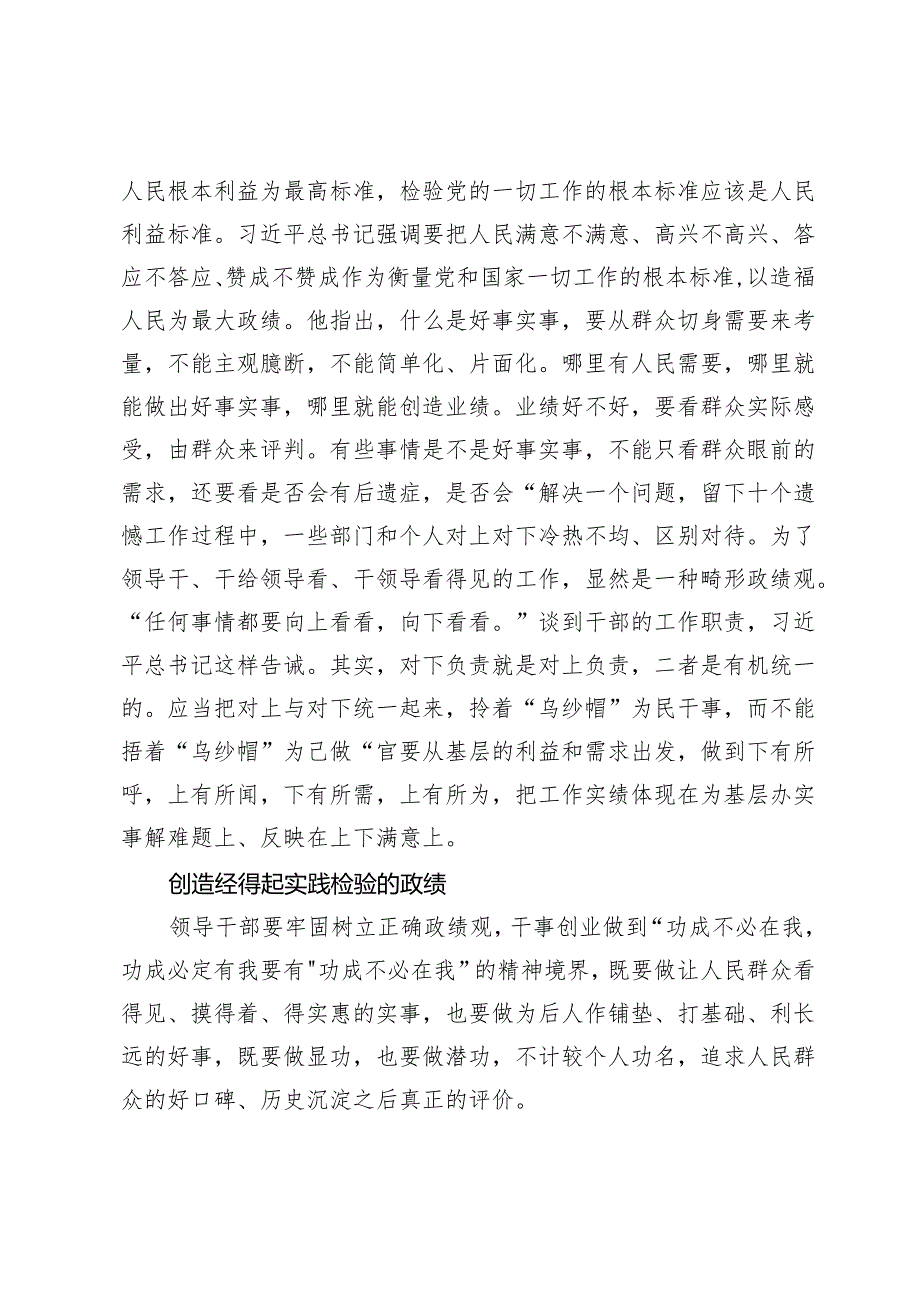 人民根本利益为最高标准，检验党的一切工作的根本标准应该是人民
利益标准。习近平总书记强调要把人民满意不满意、高兴不高兴、答
应不答应、赞成不赞成作为衡量党和国家一切工作的根本标准,以造福
人民为最大政绩。他指出，什么是好事实事，要从群众切身需要来考
量，不能主观臆断，不能简单化、片面化。哪里有人民需要，哪里就
能做出好事实事，哪里就能创造业绩。业绩好不好，要看群众实际感
受，由群众来评判。有些事情是不是好事实事，不能只看群众眼前的
需求，还要看是否会有后遗症，是否会“解决一个问题，留下十个遗
憾工作过程中，一些部门和个人对上对下冷热不均、区别对待。为了
领导干、干给领导看、干领导看得见的工作，显然是一种畸形政绩观。
“任何事情都要向上看看，向下看看。”谈到干部的工作职责，习近
平总书记这样告诫。其实，对下负责就是对上负责，二者是有机统一
的。应当把对上与对下统一起来，拎着“乌纱帽”为民干事，而不能
捂着“乌纱帽”为己做“官要从基层的利益和需求出发，做到下有所
呼，上有所闻，下有所需，上有所为，把工作实绩体现在为基层办实
事解难题上、反映在上下满意上。
创造经得起实践检验的政绩
领导干部要牢固树立正确政绩观，干事创业做到“功成不必在我，
功成必定有我要有"功成不必在我”的精神境界，既要做让人民群众看
得见、摸得着、得实惠的实事，也要做为后人作铺垫、打基础、利长
远的好事，既要做显功，也要做潜功，不计较个人功名，追求人民群
众的好口碑、历史沉淀之后真正的评价。